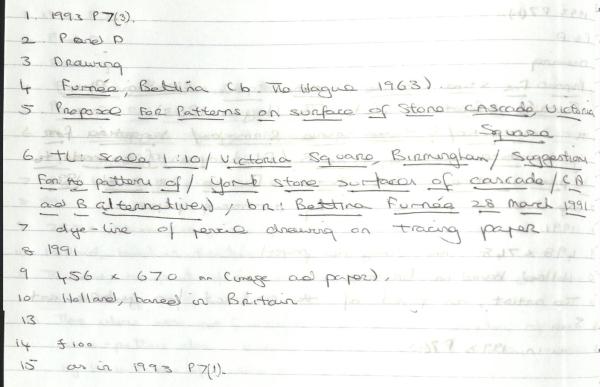 1. 1993 P7(3).
2 P and D
3 Drawing
4 Furnée, Bettina (b. The Hague 1963)
5 Proposal for Patterns on surface of Stone Cascade, Victoria
Square
6 TL: scale 1:10/ Victoria Square, Birmingham/ Suggestion
for the pattern of/ York stone surfaces of cascade/ (A
and B alternatives); br: Bettina Furnée 28 March 1991
7 dye-line of pencil drawing on tracing paper
8 1991
9 456 x 670 mm (image and paper).
10 Holland, based in Britain
13
14 £100
15 as in 1993 P7(1).